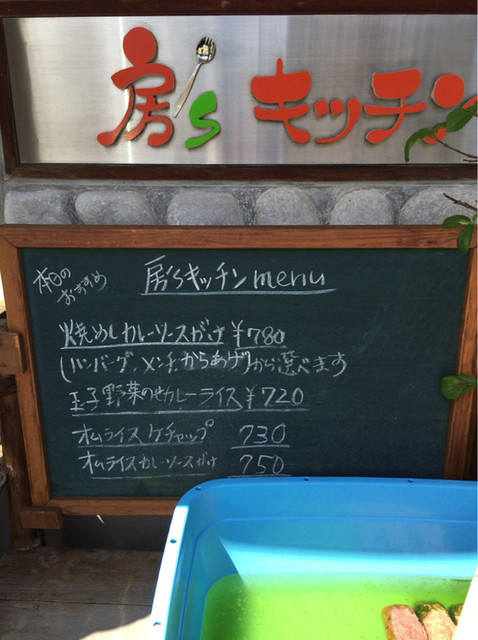 房's キッチン
本日の
おすすめ
房'sキッチン menu
焼めしカレーソースがけ ¥780
(ハンバーグ、メンチ、からあげ)から選べます
玉子野菜のせカレーライス ¥720
オムライスケチャップ 730
オムライスカレーソースがけ 750